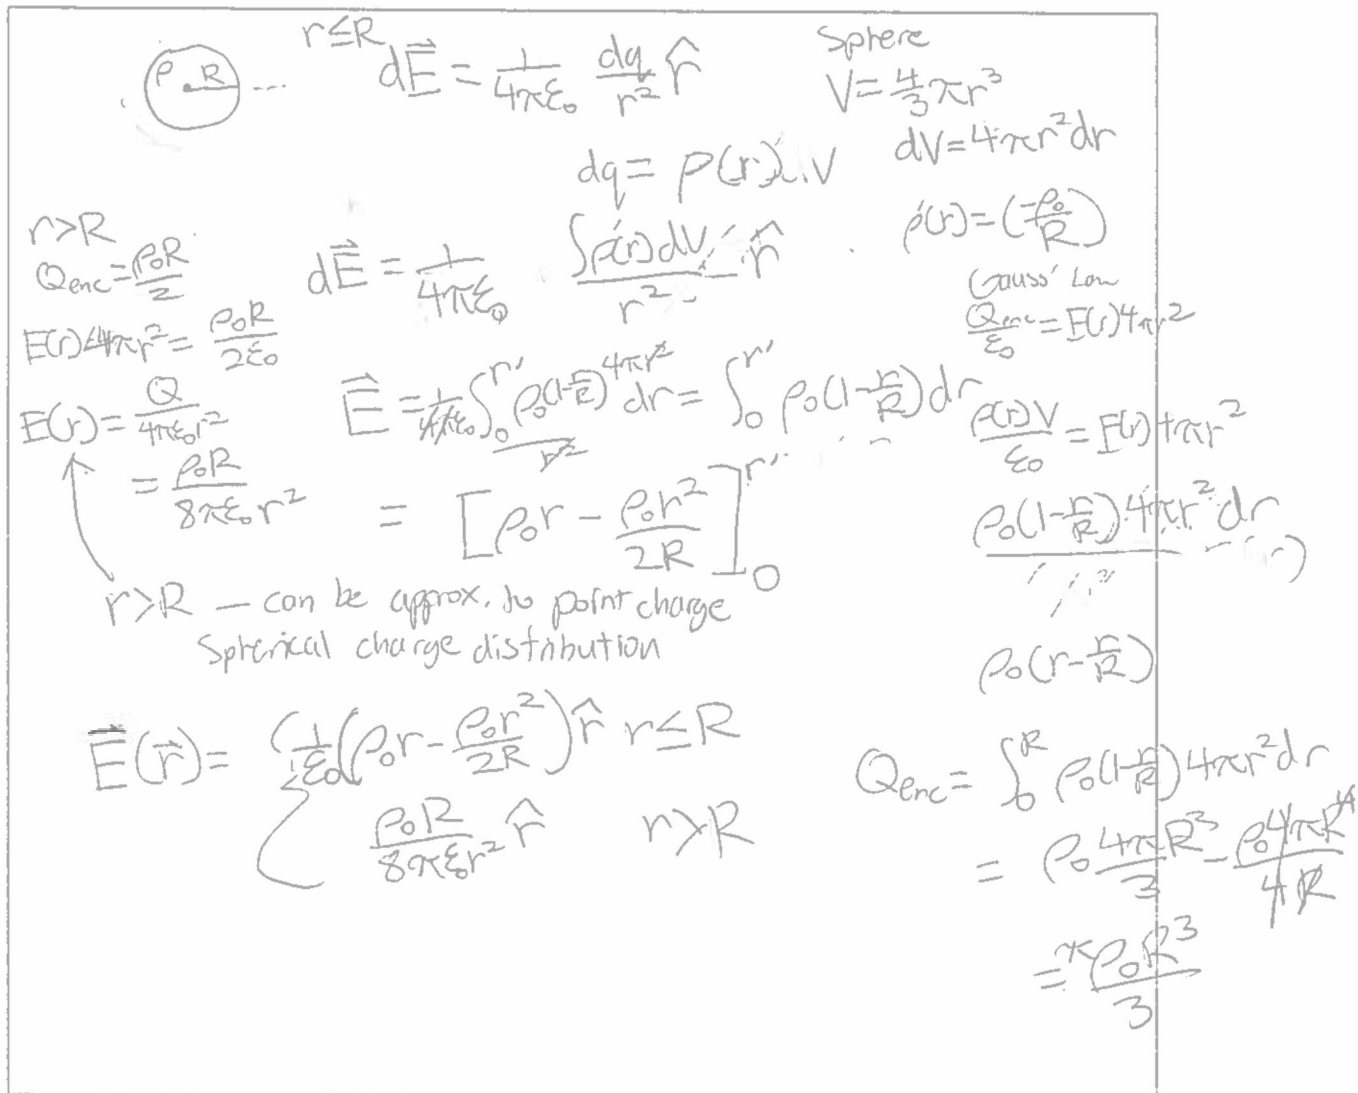 ρ R
r≤R
dE⃗ = 1/(4πε₀) dq/r² r̂
Sphere
V = 4/3 πr³
dV = 4πr²dr
dq = ρ(r) dV
ρ'(r) = (-ρ₀/R)
r>R
Qenc = ρ₀R/2
E(r) 4πr² = ρ₀R/(2ε₀)
E(r) = Q/(4πε₀r²)
= ρ₀R/(8πε₀r²)
dE⃗ = 1/(4πε₀) ∫ρ(r)dV/r² r̂
Gauss' Law
Qenc/ε₀ = E(r)4πr²
E⃗ = 1/(4πε₀) ∫₀^r' ρ₀(1-r/R)4πr²/r² dr = ∫₀^r' ρ₀(1-r/R)dr
= [ρ₀r - ρ₀r²/(2R)]₀^r'
ρ(r)V/ε₀ = E(r)4πr²
ρ₀(1-r/R)4πr²dr
r>R — can be approx. to point charge
Spherical charge distribution
ρ₀(r-r/R)
E⃗(r⃗) = { 1/ε₀(ρ₀r - ρ₀r²/(2R)) r̂ r≤R
ρ₀R/(8πε₀r²) r̂ r>R
Qenc = ∫₀^R ρ₀(1-r/R)4πr²dr
= ρ₀ 4πR³/3 - ρ₀4πR⁴/(4R)
= πρ₀R³/3